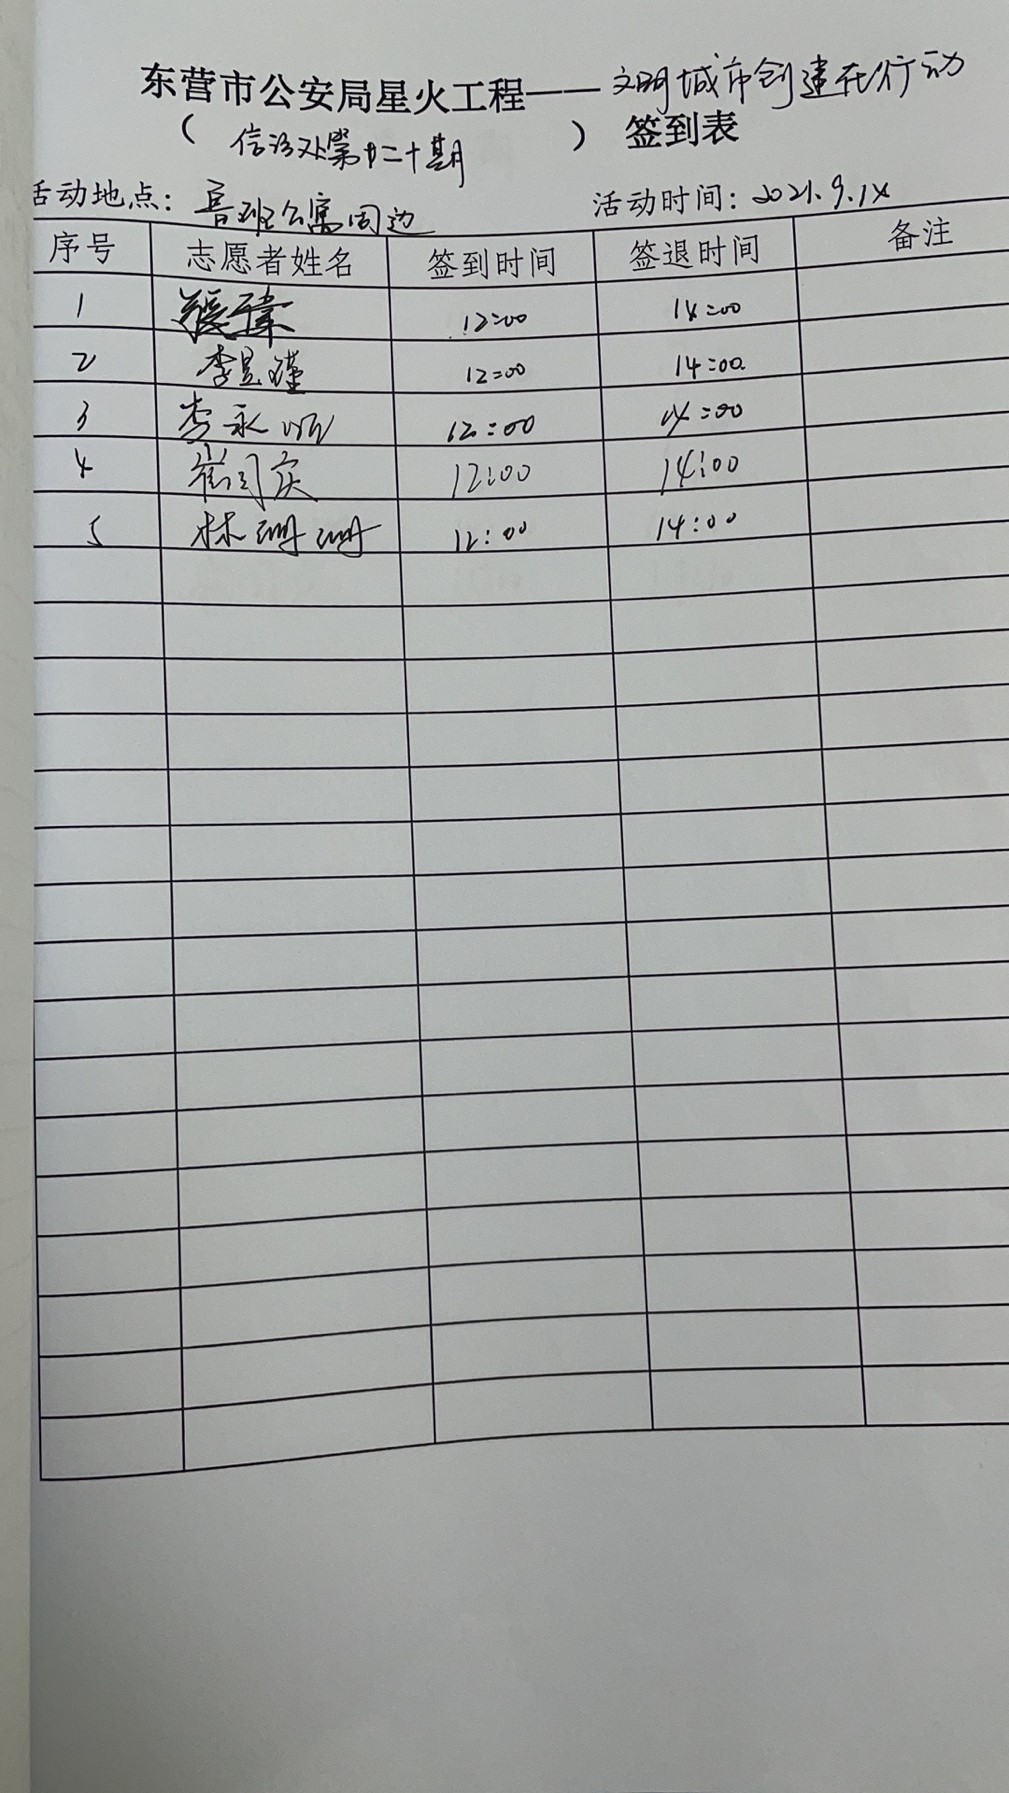 东营市公安局星火工程——文明城市创建在行动
（ 信访处第 二十期 ） 签到表
活动地点：鲁班公寓周边 活动时间：2021.9.14
序号 志愿者姓名 签到时间 签退时间 备注
1 张伟 12:00 14:00
2 李昱瑾 12:00 14:00
3 李永 12:00 14:00
4 崔 庆 12:00 14:00
5 林珊珊 12:00 14:00